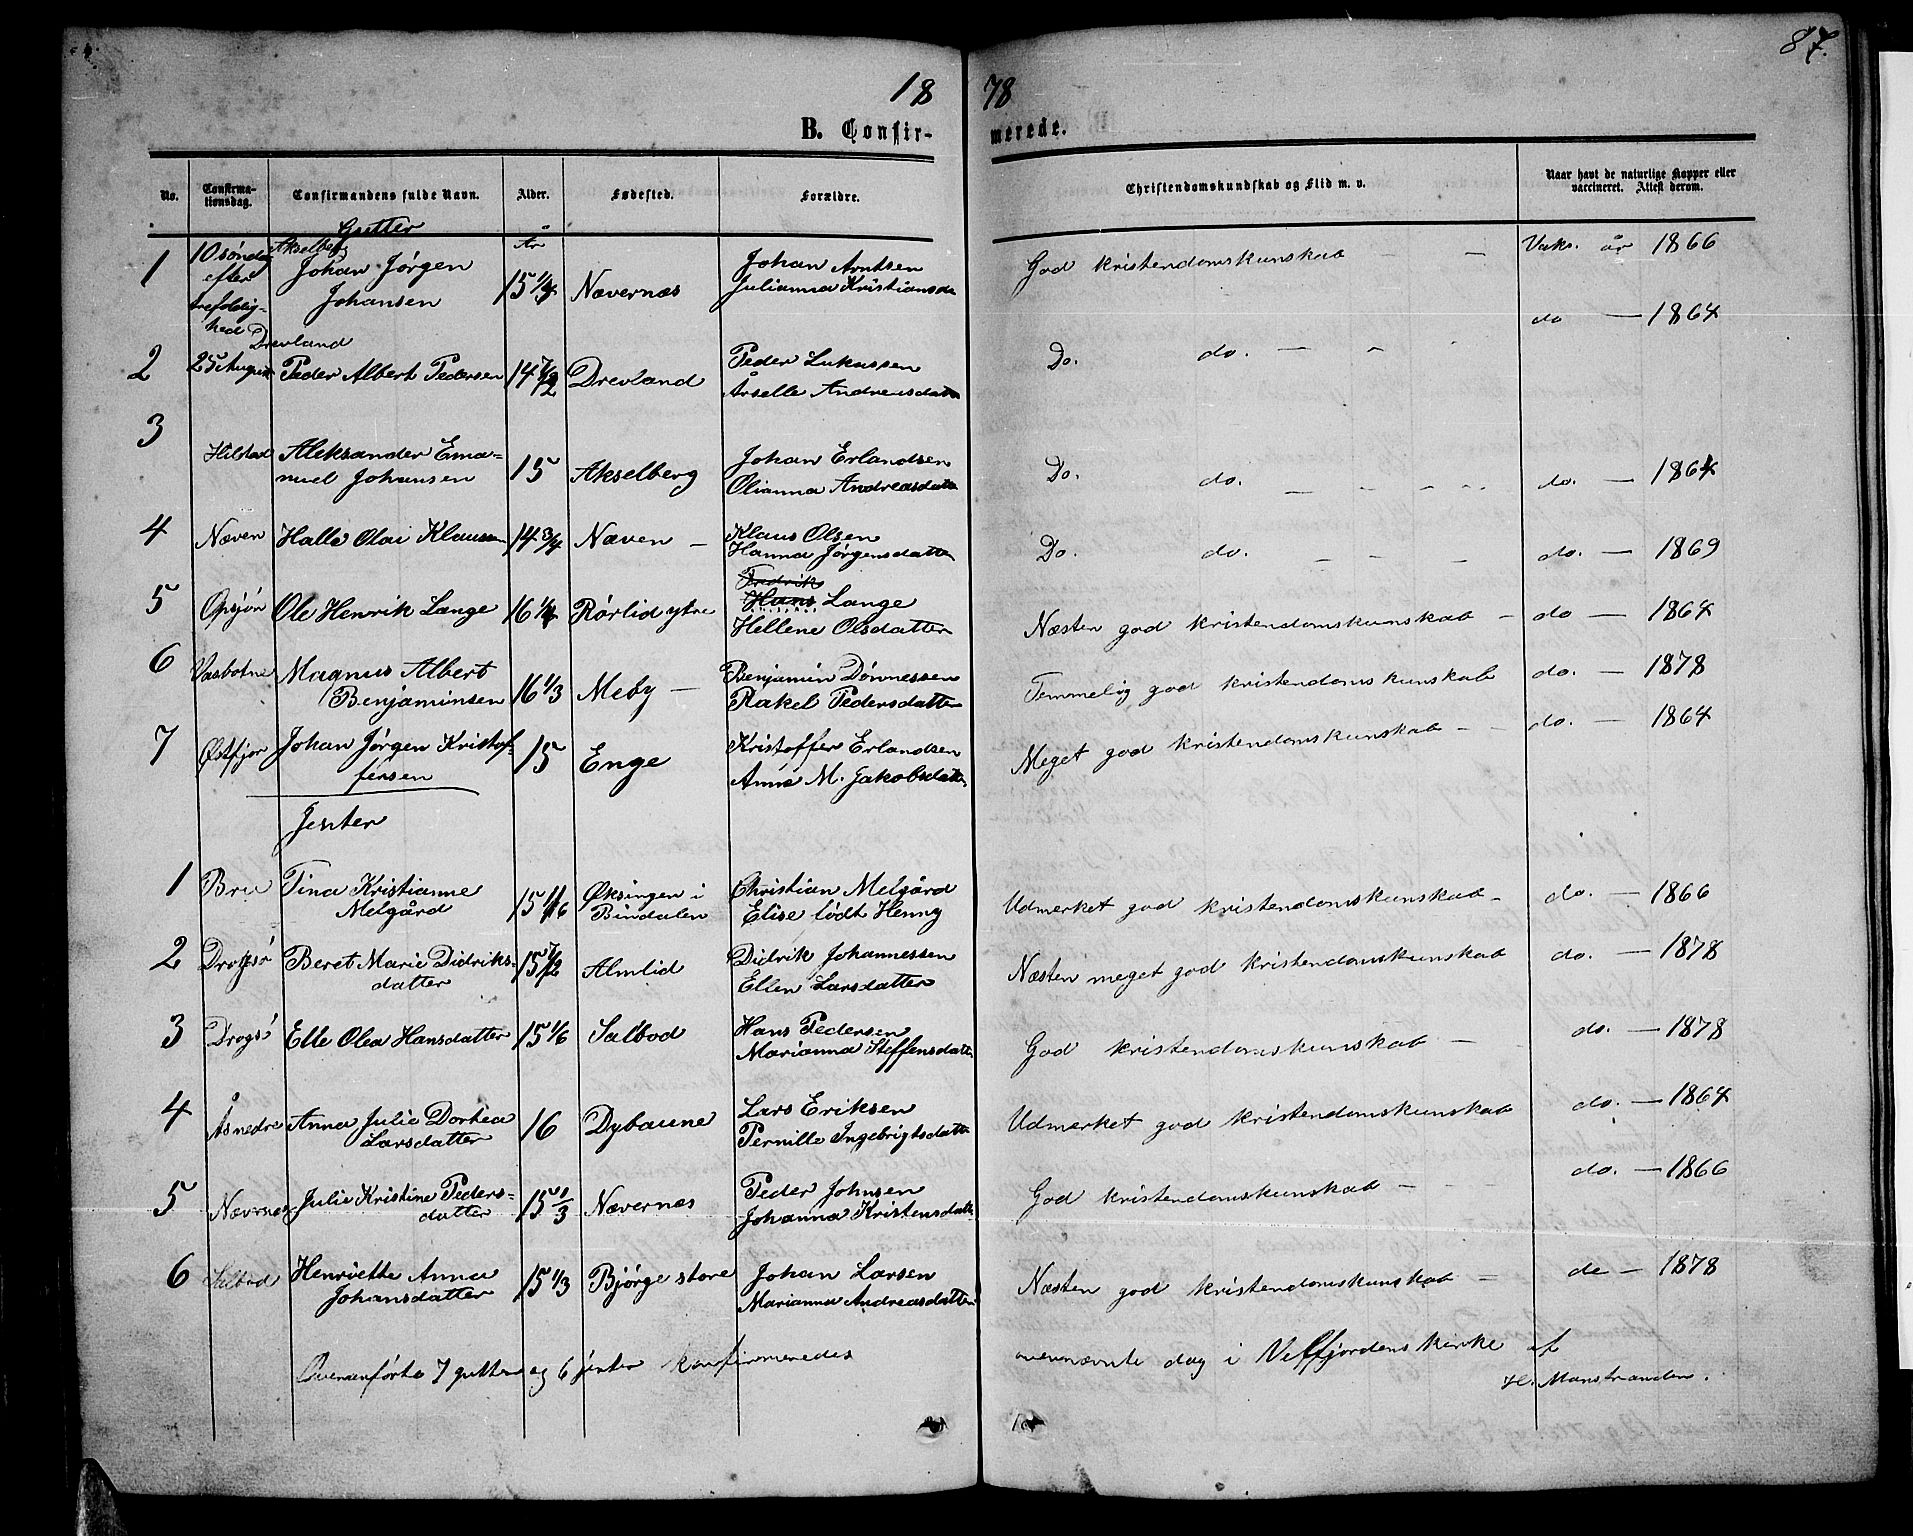 87.
18 78
B. Confir- merede.
No. Confirma-tionsdag. Confirmandens fulde Navn. Alder. Fødested. Forældre. Christendomskundskab og Flid m. v. Naar havt de naturlige Kopper eller vaccineret. Attest derom.
Gutter
År
1 10 søndag efter trefoldig-hed Akselberg Johan Jørgen Johansen 15 1/3 Nævernæs Johan Arntsen Julianna Kristiansda God kristendomskunskab - - Vaks. år 1866
2 25 August Drevland Peder Albert Pedersen 14 7/12 Drevland Peder Lukassen Årselle Andreasdatter Do. do. - " - do - 1864
3 Hilstad Aleksander Ema-nuel Johansen 15 Akselberg Johan Erlandsen Olianna Andreasdatter Do. do. - - - - do. - 1864
4 Næven Halle Olai Klausen 14 3/4 Næven - Klaus Olsen Hanna Jørgensdatter Do. do. - - do. - 1869
5 Opsjøn Ole Henrik Lange 16 1/4 Rørlid ytre Fredrik Hans Lange Hellene Olsdatter Næsten god kristendomskunskab - do - 1864
6 Vasbotne Magnus Albert Benjaminsen 16 1/3 Meby - Benjamin Dønnessen Rakel Pedersdatter Temmelig god kristendomskunskab do. - 1878
7 Østfjor Johan Jørgen Kristof-fersen 15 Enge Kristoffer Erlandsen Anne M. Jakobsdatter Meget god kristendomskunskab - - do. - 1864
Jenter
1 Bru Tina Kristianne Melgård 15 11/6 Øksingen i Bindalen Christian Melgård Elise født Henny Udmerket god kristendomskunskab - do. - 1866
2 Drogsø Beret Marie Didriks-datter 15 7/12 Almlid Didrik Johannessen Ellen Larsdatter Næsten meget god kristendomskunskab do. - 1878
3 Drogsø Elle Olea Hansdatter 15 1/6 Salbod Hans Pedersen Marianna Steffensdatter God kristendomskunskab - do. - 1878
4 Åsnedre Anna Julie Dorhea Larsdatter 16 Dybaune Lars Eriksen Pernille Ingebrigtsdatter Udmerket god kristendomskunskab do. - 1864
5 Nævrnes Julie Kristine Peders-datter 15 1/3 Nævernæs Peder Johnsen Johanna Kristensdatter God kristendomskunskab - - do. - 1866
6 Salbod Henriette Anna Johansdatter 15 1/3 Bjørge store Johan Larsen Marianna Andreasdatter Næsten god kristendomskunskab - do - 1878
Ovenanførte 7 gutter og 6 jenter konfirmeredes ovennævnte dag i Velfjordens kirke af
H. Manstranden.